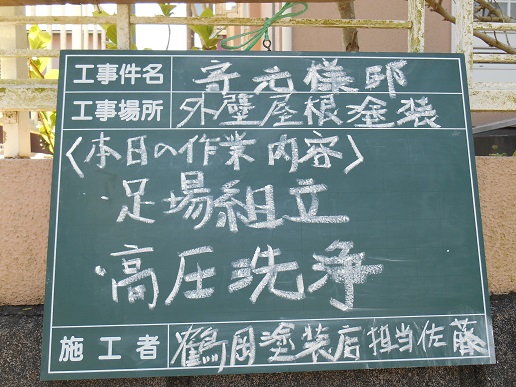 工事件名 寺元様邸
工事場所 外壁屋根塗装
〈本日の作業内容〉
・足場組立
・高圧洗浄
施工者 鶴岡塗装店担当佐藤